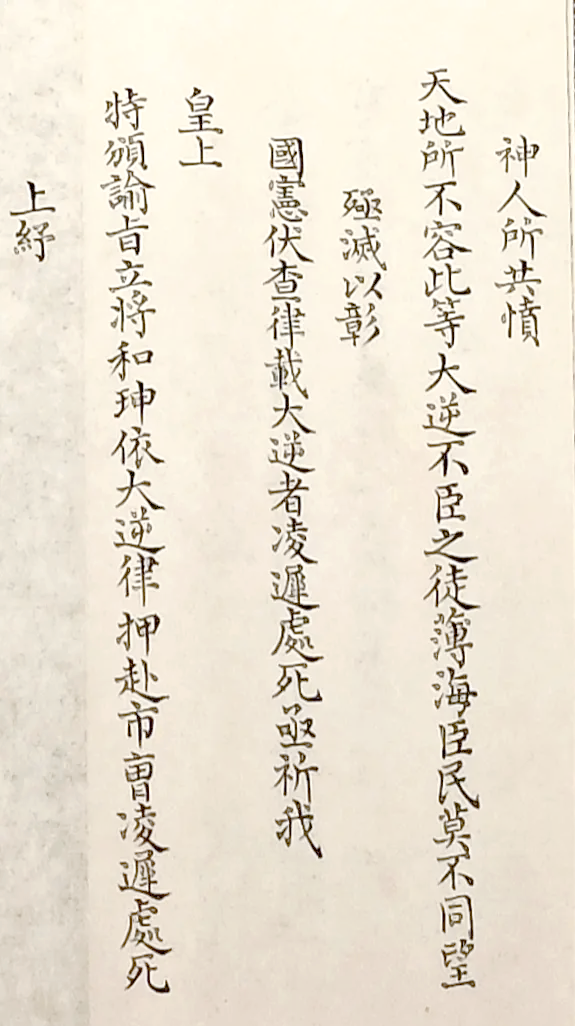 神人所共憤
天地所不容此等大逆不臣之徒薄海臣民莫不同望
殛滅以彰
國憲伏查律載大逆者凌遲處死亟祈我
皇上
特頒諭旨立將和珅依大逆律押赴市曹凌遲處死
上紓